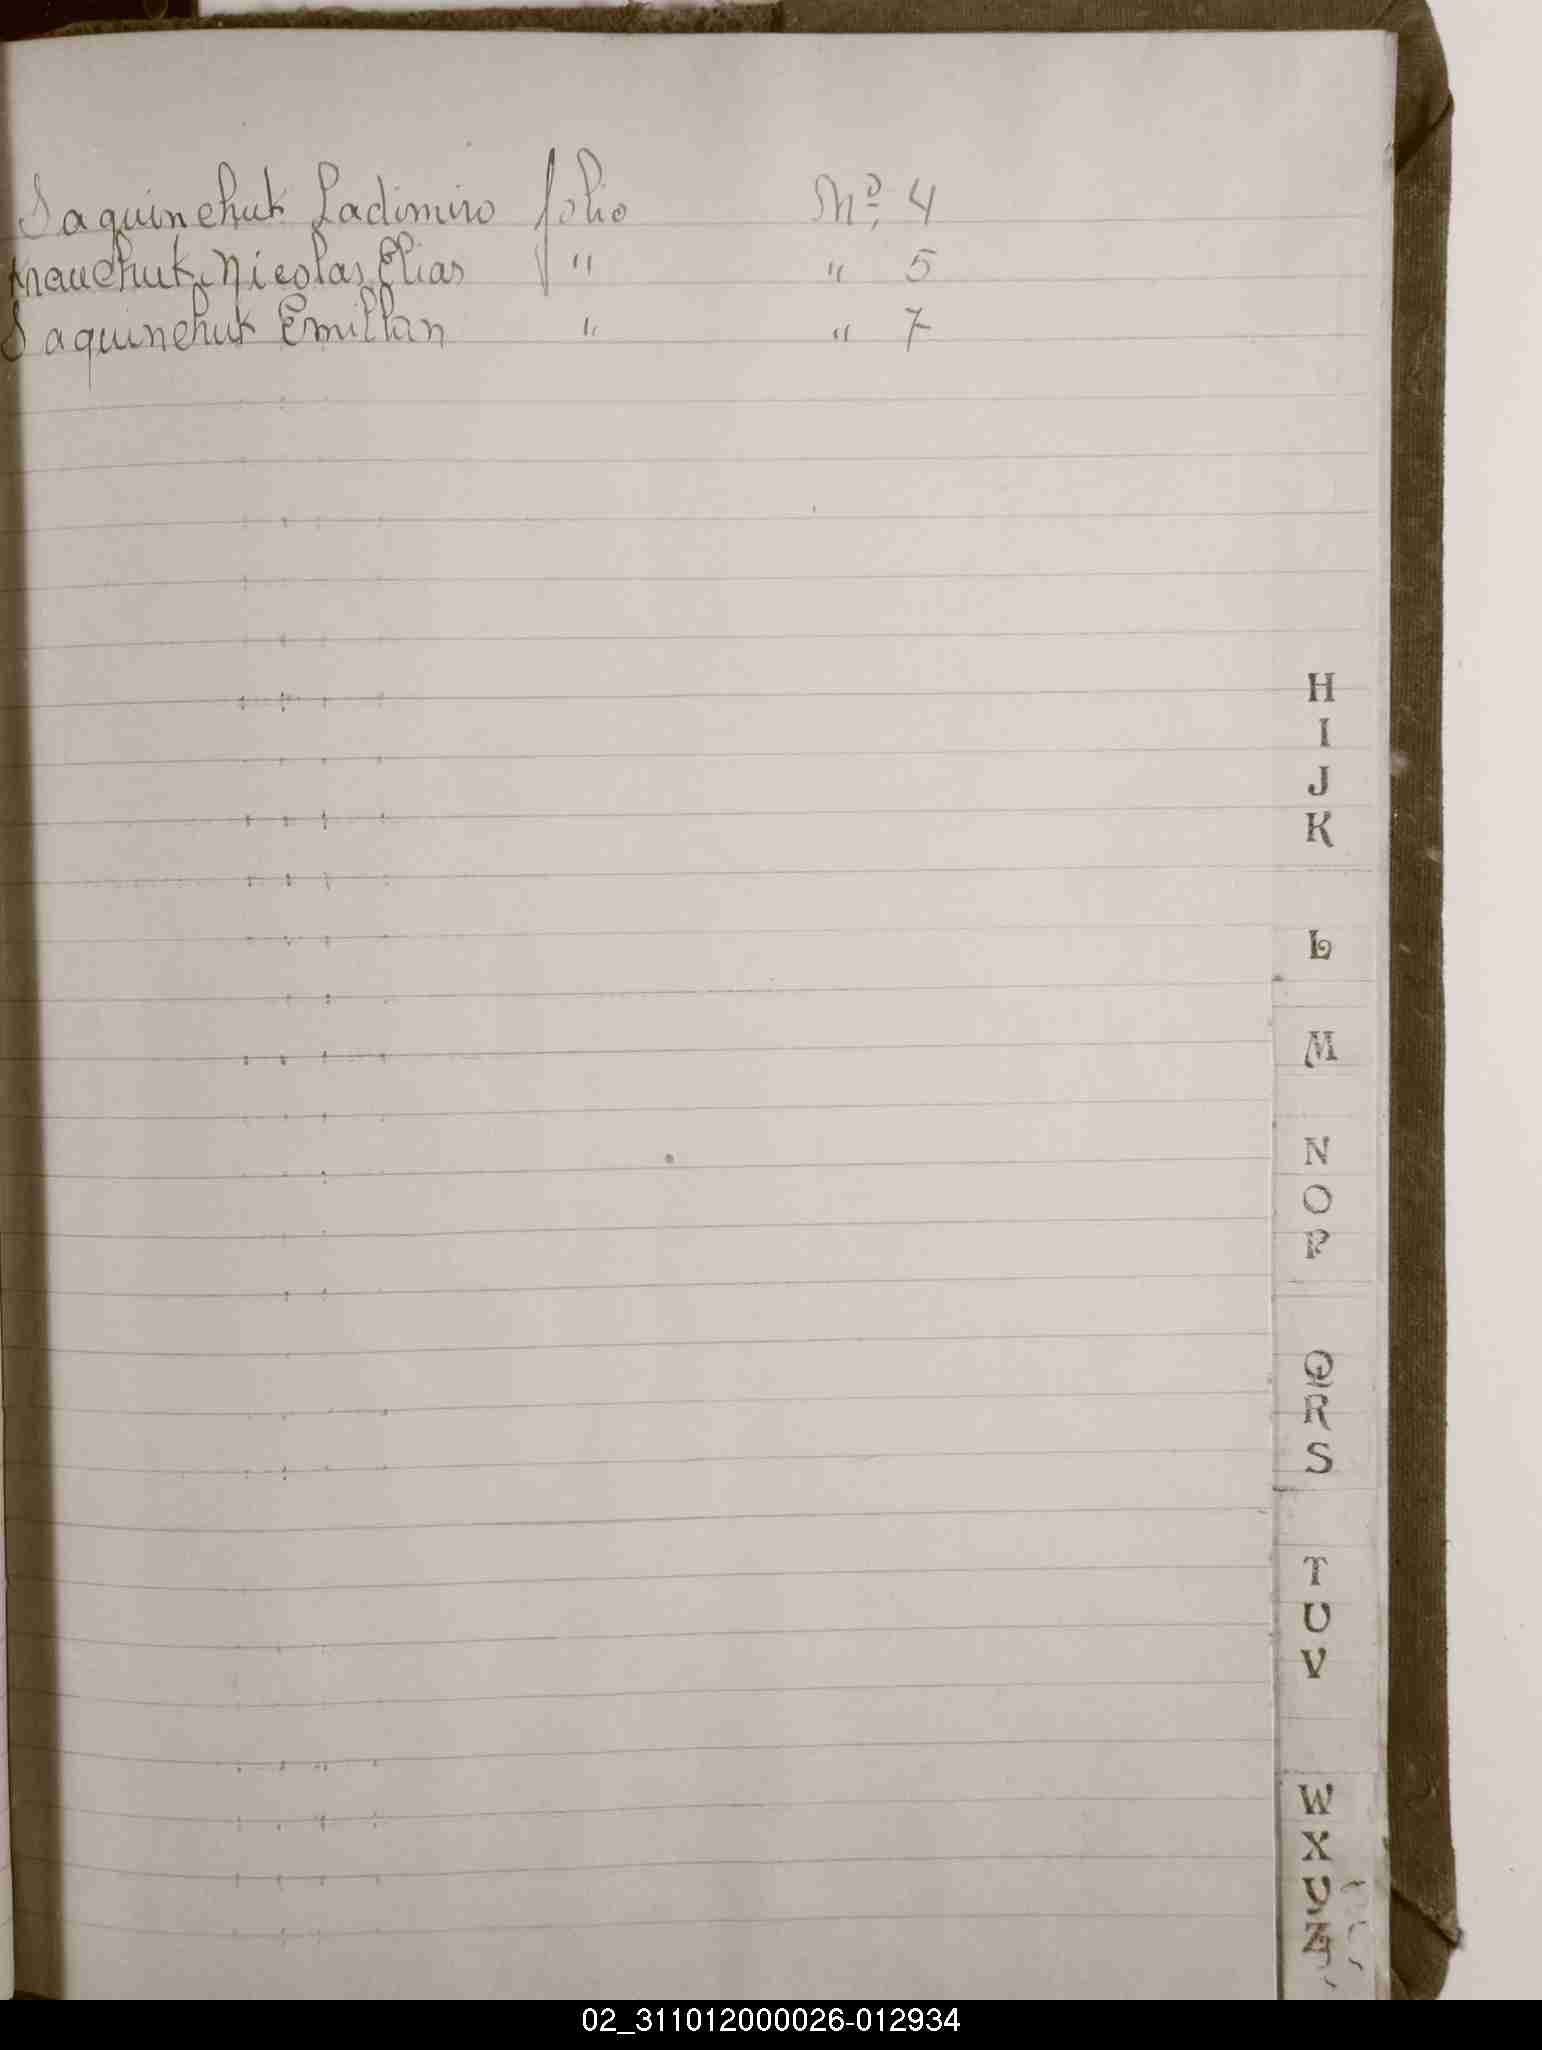 Saquinchuk Ladimiro folio Nº. 4
Knauchuk, Nicolas, Elias " " 5
Saquinchuk Emilian " " 7
H
I
J
K
L
M
N
O
P
Q
R
S
T
U
V
W
X
Y
Z
02_311012000026-012934